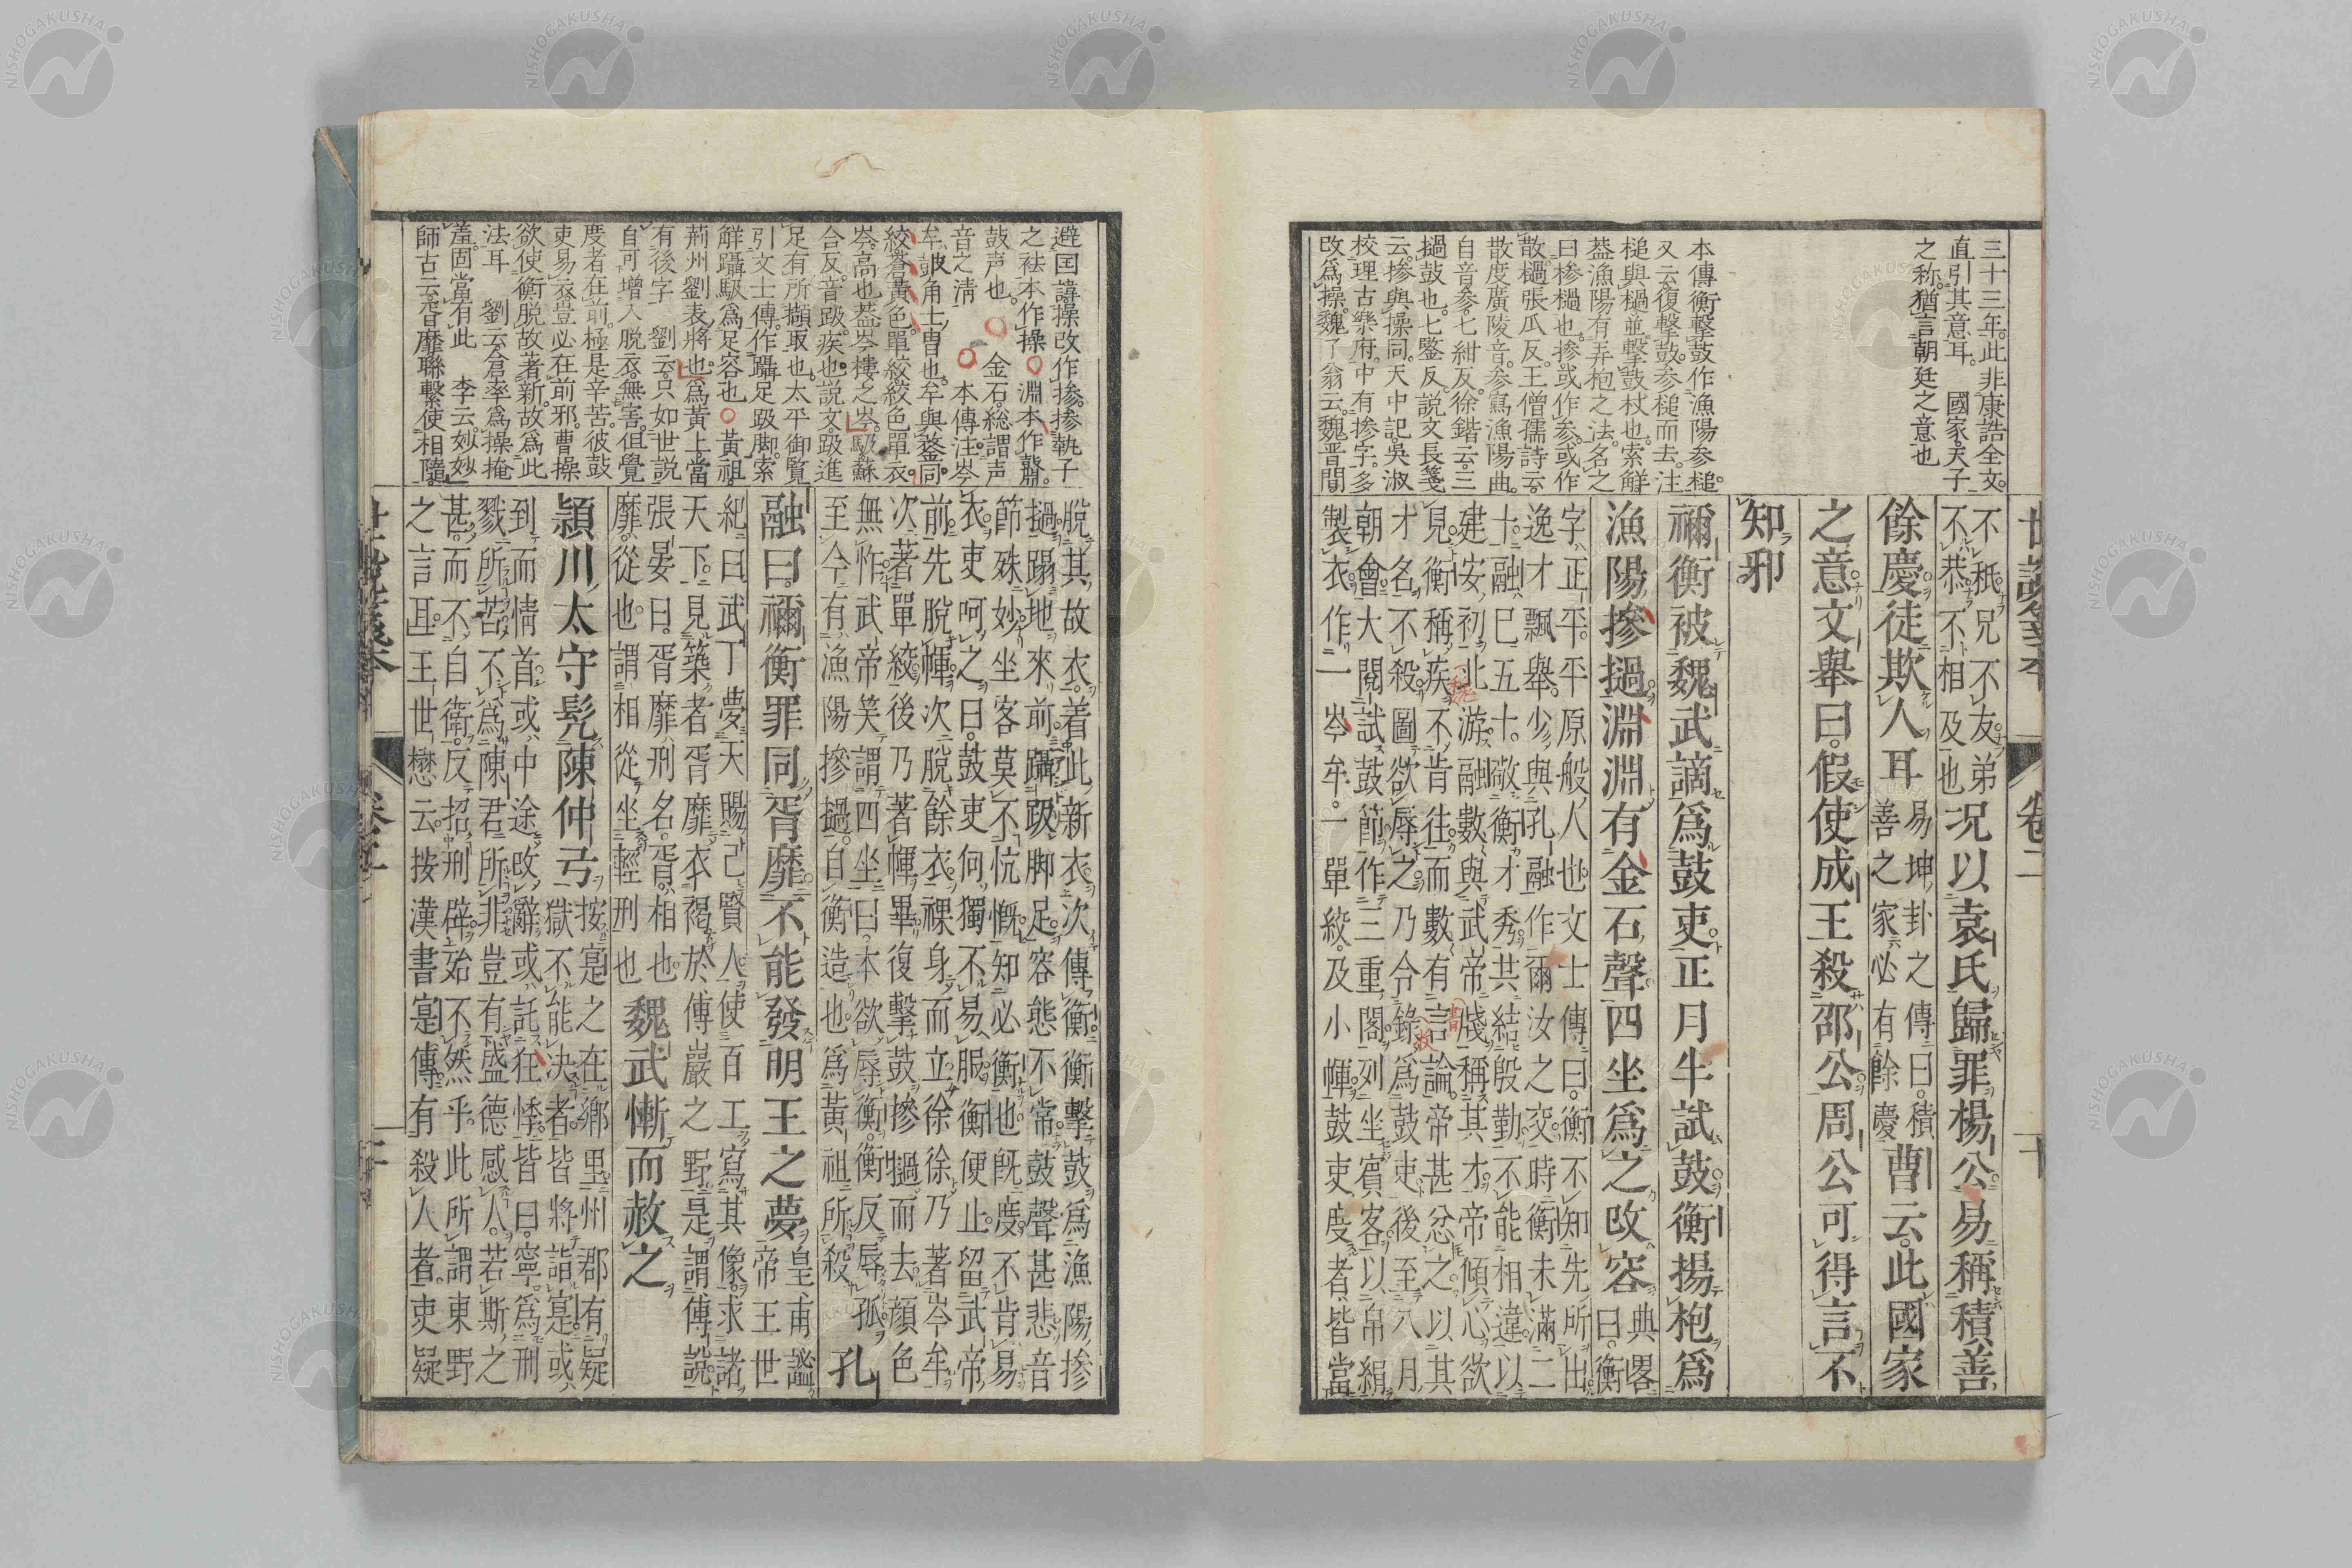 三十三年。此非康誥全文。
直引其意耳。 國家天子
之称。猶言朝廷之意也
本傳衡擊鼓作漁陽参槌。
又云復擊鼓参槌而去。注
槌與檛並擊鼓杖也。索解
葢漁陽有弄枹之法。名之
曰摻檛也。摻或作参。或作
散。檛張瓜反。王僧孺詩云。
散度廣陵音。参寫漁陽曲。
自音参。七紺反。徐鍇云。三
檛鼓也。七鑒反。説文長箋
云。摻與操同。天中記。吳淑
校理古樂府。中有摻字。多
改爲操。魏了翁云。魏晋間
世説箋本 卷二 十
不祗兄不友弟
不恭不相及也
況以袁氏歸罪楊公易稱積善
餘慶徒欺人耳
易坤卦之傳曰積
善之家必有餘慶
曹云此國家
之意文舉曰假使成王殺邵公周公可得言不
知邪
禰衡被魏武謫爲鼓吏正月半試鼓衡揚枹爲
漁陽摻檛淵淵有金石聲四坐爲之改容
典畧
曰。衡
字正平。平原般人也。文士傳曰。衡不知先所出
逸才飄舉。少與孔融作爾汝之交。時衡未滿二
十。融已五十。敬衡才秀。共結殷勤。不能相違。以
建安初北游。融數與武帝牋稱其才。帝傾心欲
見。衡稱疾不肯往。而數有言論。帝甚忿之。以其
才名不殺。圖欲辱之。乃令錄爲鼓吏。後至八月
朝會大閱試鼓節。作三重閣。列坐賓客。以帛絹
製衣。作一岑牟。一單絞。及小幝。鼓吏度者。皆當
避国諱操改作摻。摻執子
之袪本作操 淵本作鼘。
鼓声也。 金石。総謂声
音之清 本傳注。岑
牟。鼓角士冑也。牟與鍪同
絞。蒼黃色。單絞。絞色單衣
岑。高也葢岑樓之岑。馺蘇
合反。音趿。疾也。説文趿進
足有所擷取也。太平御覧
引文士傳。作躡足趿脚。索
解躡馺爲足容也 黃祖。
荊州劉表將也。爲黃上當
有後字 劉云。只如世説
自可。增入脱衣。無害。但覺
度者在前。極是辛苦。彼鼓
吏易衣。豈必在前邪。曹操
欲使衡脱故著新。故爲此
法耳 劉云倉率爲操掩
羞。固當有此 李云妙妙
師古云。胥靡聯繫使相隨。
脱其故衣。着此新衣。次傳衡。衡擊鼓爲漁陽摻
檛。蹋地來前。躡趿脚足。容態不常。鼓聲甚悲。音
節殊妙。坐客莫不忼慨。知必衡也。既度。不肯易
衣。吏呵之曰。鼓吏何獨不易服。衡便止。留武帝
前。先脱幝。次脱餘衣。裸身而立。徐徐乃著岑牟。
次著單絞。後乃著幝。畢。復擊鼓摻檛而去。顔色
無怍。武帝笑謂四坐曰。本欲辱衡。衡反辱孤
至今有漁陽摻檛。自衡造也。爲黃祖所殺
孔
融曰禰衡罪同胥靡不能發明王之夢
皇甫謐
帝王世
紀曰。武丁夢天賜己賢人。使百工寫其像。求諸
天下。見築者胥靡衣褐於傅巖之野。是謂傅説。
張晏曰。胥靡刑名。胥相也。
靡從也。謂相從坐輕刑也
魏武慚而赦之
潁川太守髡陳仲弓
按寔之在鄉里。州郡有疑
獄不能決者。皆將詣寔。或
到而情首。或中途改辭。或託狂悸。皆曰。寧爲刑
戮所苦。不爲陳君所非。豈有盛德感人。若斯之
甚。而不自衛。反招刑辟。殆不然乎。此所謂東野
之言耳。王世懋云。按漢書寔傳。有殺人者。吏疑
世説箋本 卷二 十一
NISHOGAKUSHA